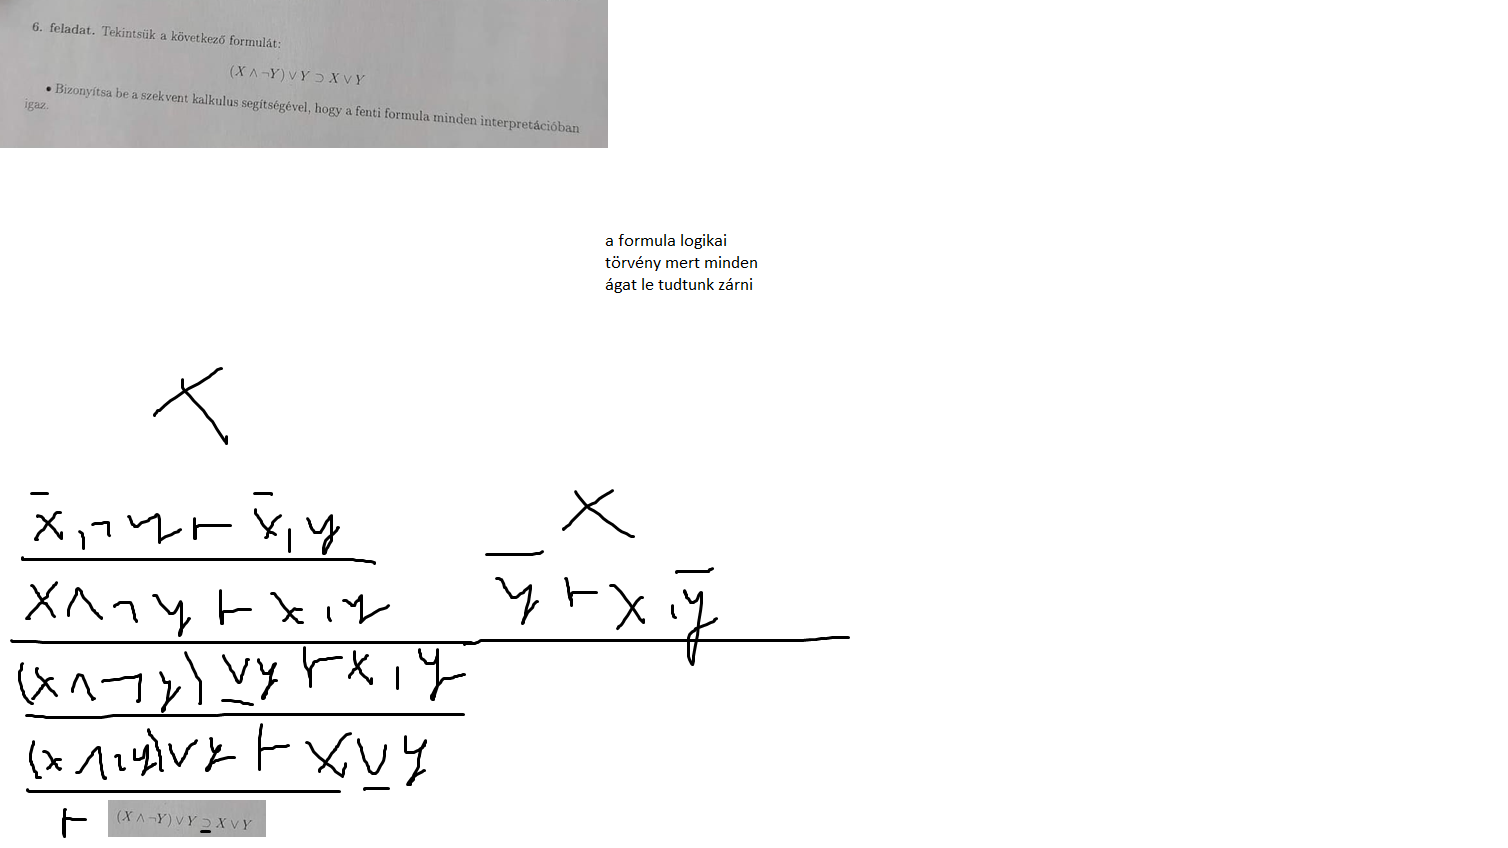 6. feladat. Tekintsük a következő formulát:
(X ∧ ¬Y) ∨ Y ⊃ X ∨ Y
• Bizonyítsa be a szekvent kalkulus segítségével, hogy a fenti formula minden interpretációban
igaz.
a formula logikai
törvény mert minden
ágat le tudtunk zárni
X
X
x, ¬y ⊢ x, y
y ⊢ x, y
x ∧ ¬y ⊢ x, y
(x ∧ ¬y) ∨ y ⊢ x, y
(x ∧ ¬y) ∨ y ⊢ x ∨ y
⊢ (X ∧ ¬Y) ∨ Y ⊃ X ∨ Y